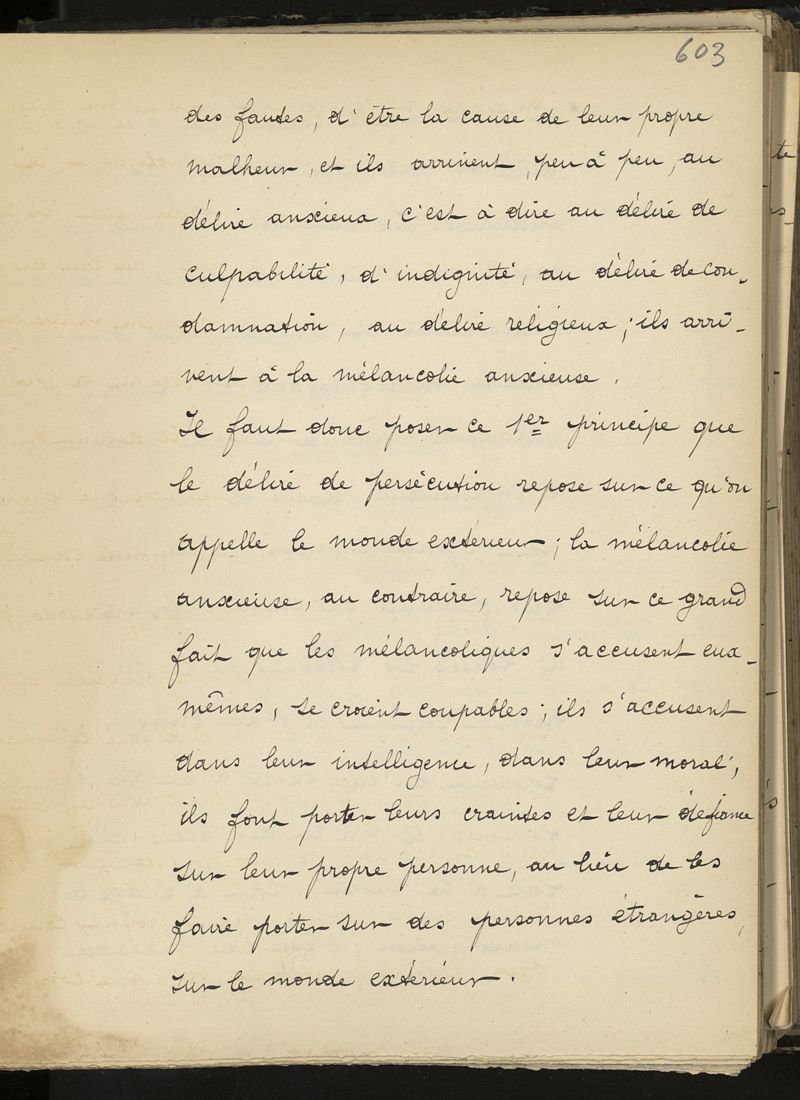 603
des fautes, d'être la cause de leur propre
malheur, et ils arrivent, peu à peu, au
délire anxieux, c'est à dire au délire de
culpabilité, d'indignité, au délire de con-
damnation, au délire religieux; ils arri-
vent à la mélancolie anxieuse.
Il faut donc poser ce 1er principe que
le délire de persécution repose sur ce qu'on
appelle le monde extérieur; la mélancolie
anxieuse, au contraire, repose sur ce grand
fait que les mélancoliques s'accusent eux-
mêmes, se croient coupables; ils s'accusent
dans leur intelligence, dans leur moral,
ils font porter leurs craintes et leur défiance
sur leur propre personne, au lieu de les
faire porter sur des personnes étrangères,
sur le monde extérieur.